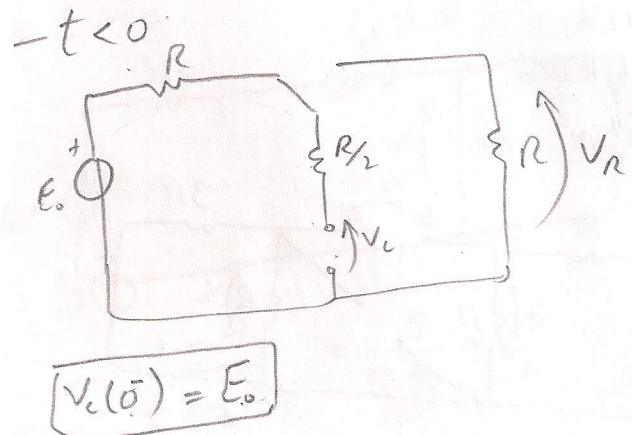 - t < 0
R
+
E₀
R/2
Vc
R
VR
Vc(0⁻) = E₀